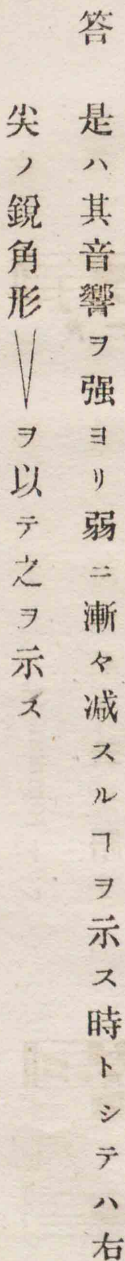 答　是ハ其音響ヲ强ヨリ弱ニ漸々减スルヿヲ示ス時トシテハ右
尖ノ鋭角形＞ヲ以テ之ヲ示ス